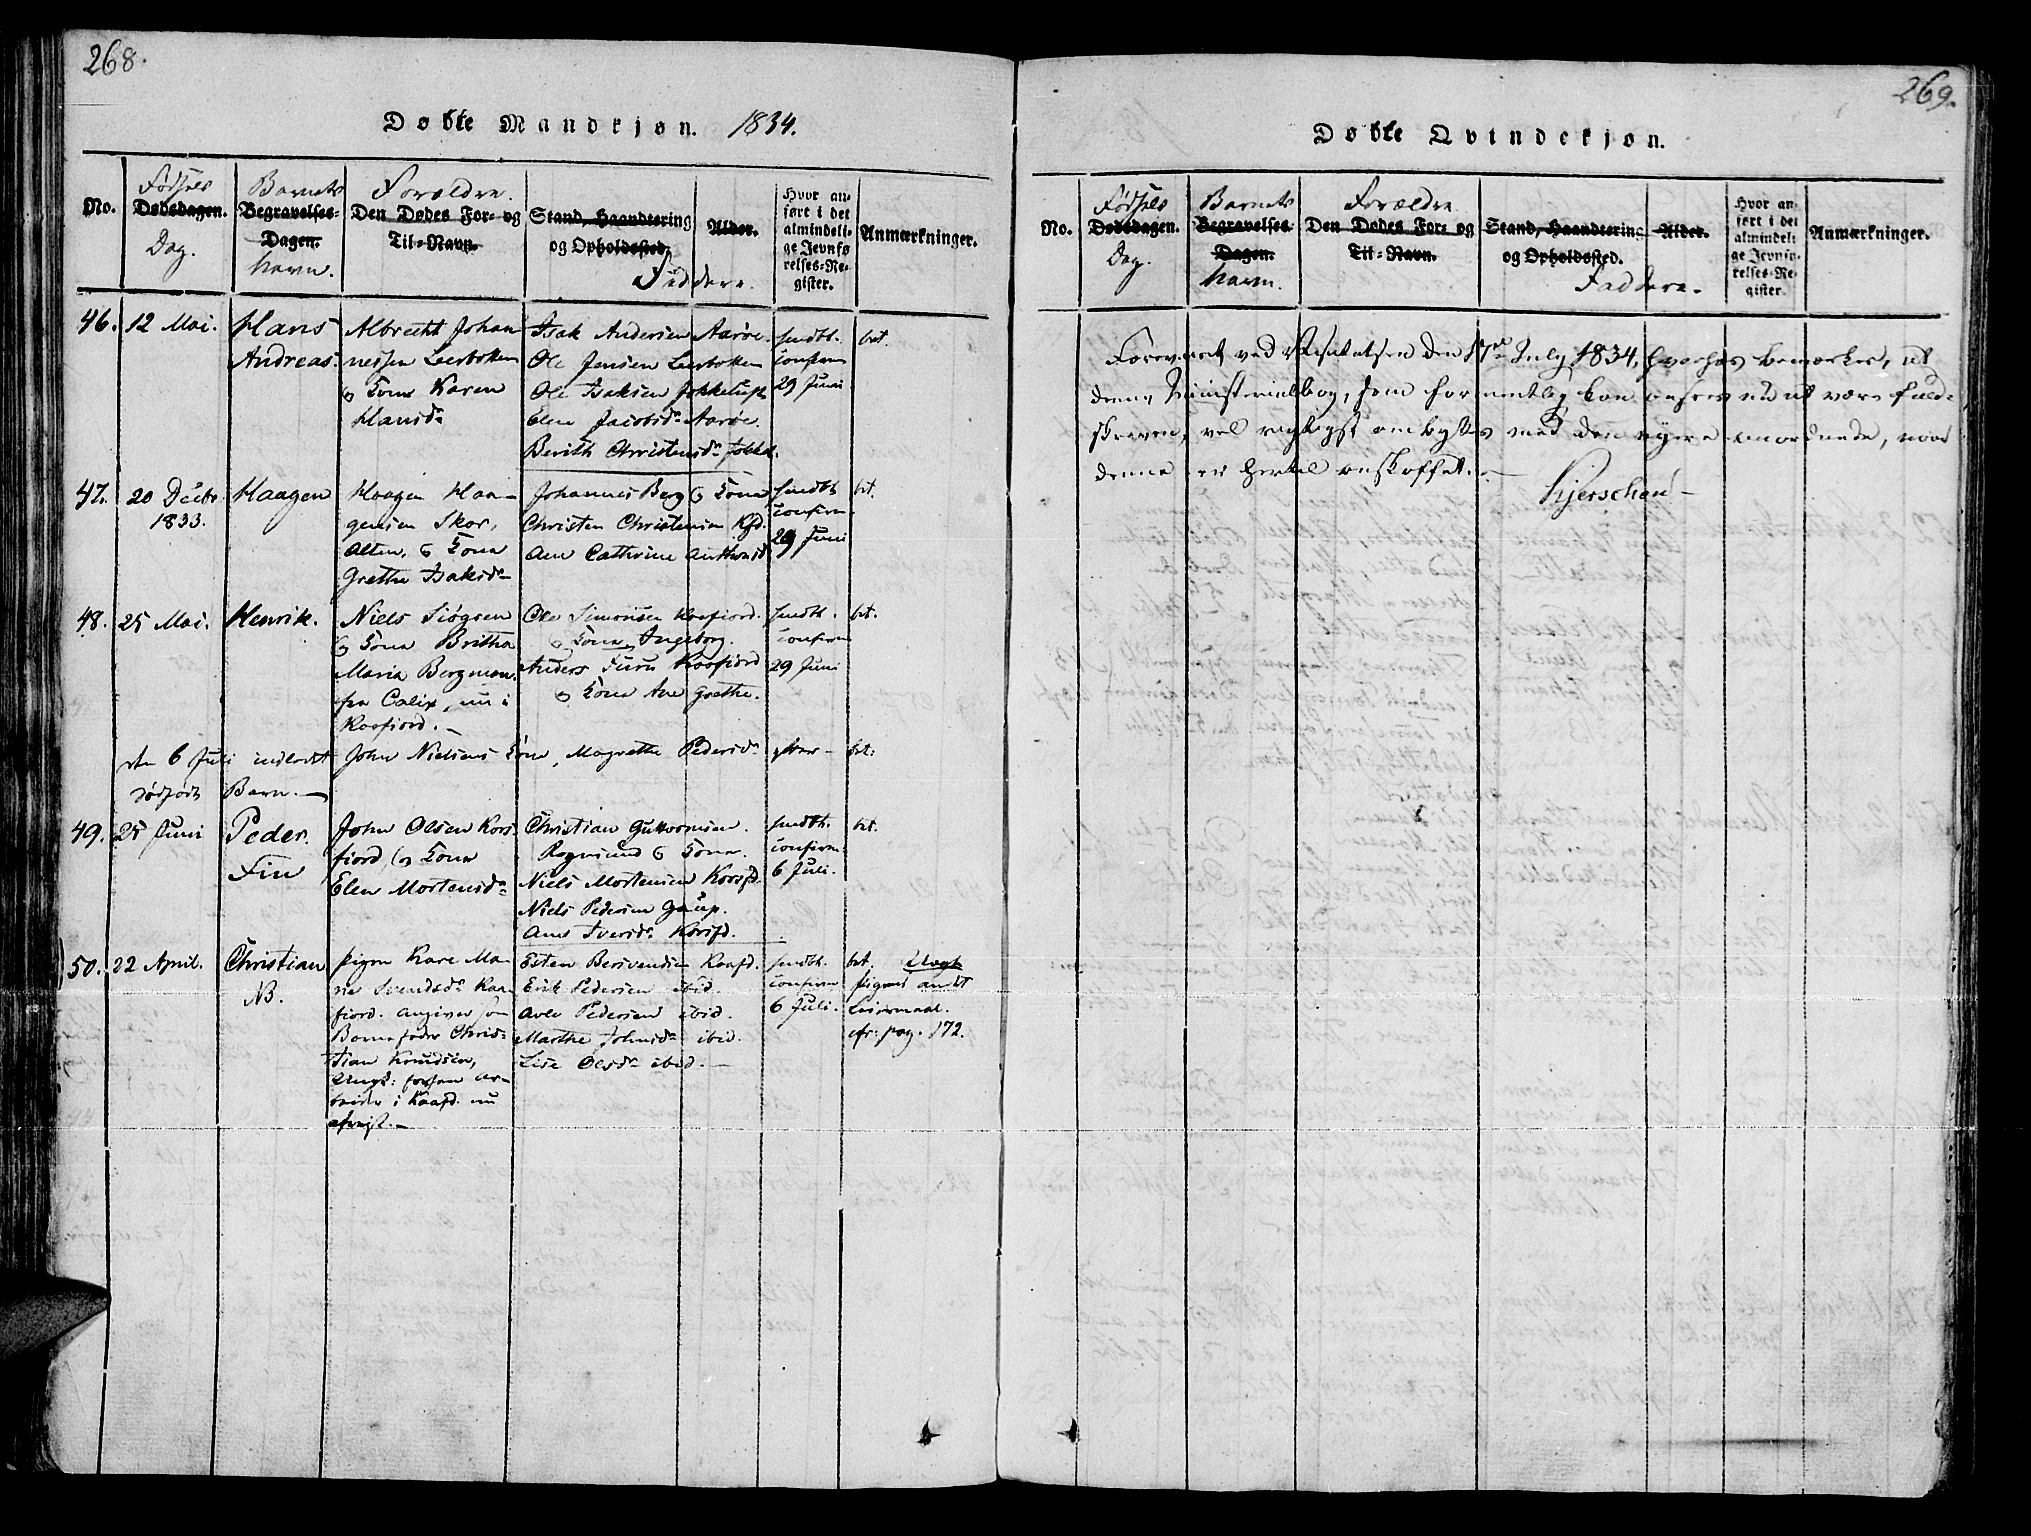 268.
Døbte Mandkjøn. 1834.
No.
Fødsels
Dødsdagen.
Dag.
Barnets
Begravelses-
Dagen.
Navn.
Forældre.
Den Dødes For- og
Til-Navn.
Stand, Haandtering
og Opholdssted.
Alder.
Faddere.
Hvor an-
ført i det
almindeli-
ge Jevnfø
relses-Re-
gister.
Anmærkninger.
46. 12 Mai. Hans
Andreas.
Albrecht Johan
nessen Leerbotten
og Kone Karen
Hansd.
Isak Andersen Aarøe.
Ole Jensen Leerbotten
Ole Isaksen Jokkelup
Elen Jacobsd. Aarøe.
Berith Christensd. Jokkel.
hmdbt.
confirm
29 Juni
bet.
47. 20 Decbr.
1833.
Haagen
Haagen Haa-
gensen Skor,
Alten, og Kone
Grethe Isaksd.
Johannes Berg og Kone
Christen Christensen Kfd.
Ane Cathrine
hmdbt
confirm
29 Juni
bet.
48. 25 Mai. Henrik.
Niels Siøgren
og Kone Britha
Maria Bergman.
fra Calix, nu i
Kaafiord.
Ole Simonsen Kaafiord.
og Kone Ingeborg.
Anders Furu Kaafiord
og Kone Ane Grethe.
hmdbt.
confirm
29 Juni
bet.
den 6 Juli indledet John Nielsens Kone, Magrethe Pedersd.
dødfødt Barn.
bet:
49. 25 Juni
Peder.
Fin
John Olsen Kors
fiord, og Kone
Elen Mortensd.
Christian Guttormsen.
Rognsund og Kone.
Niels Mortensen Korsfd.
Niels Pedersen Gaup.
Ane Iversd. Korsfd.
hmdbt.
confirm.
6 Juli.
bet.
50. 22 April. Christian
NB.
Pigen Kare Ma-
rie Svendsd. Kaa-
fiord. angiver som
Barnefader Chris-
tian Knudsen,
Ungk: forhen ar-
beider i Kaafd. nu
afreist.
Esten Bersvendsen Kaafd.
Erik Pedersen ibid.
Avle Pedersen ibid.
Marthe Johnsd. ibid.
Lise Olsd. ibid.
hmdbt.
confirm
6 Juli.
bet. Uægt
Pigens andet
Leiermaal.
cfr: pag. 172.
269.
Døbte Qvindekjøn.
No.
Fødsels
Dødsdagen.
Dag.
Barnets
Begravelses-
Dagen.
Navn.
Forældre
Den Dødes For- og
Til-Navn.
Stand, Haandtering
og Opholdssted.
Alder.
Faddere.
Hvor an-
ført i det
almindeli
ge Jevnfø-
relses-Re-
gister.
Anmærkninger.
Foreviist ved Visitatsen den 17de July 1834, hvorhos bemærkes, at
denne Ministerialbog, som formentlig kan ansees nu at være fuld-
skreven, vel rigtigst ombyttes med den nyere anordnede, naar
denne er hertil anskaffet.
Kjerschou